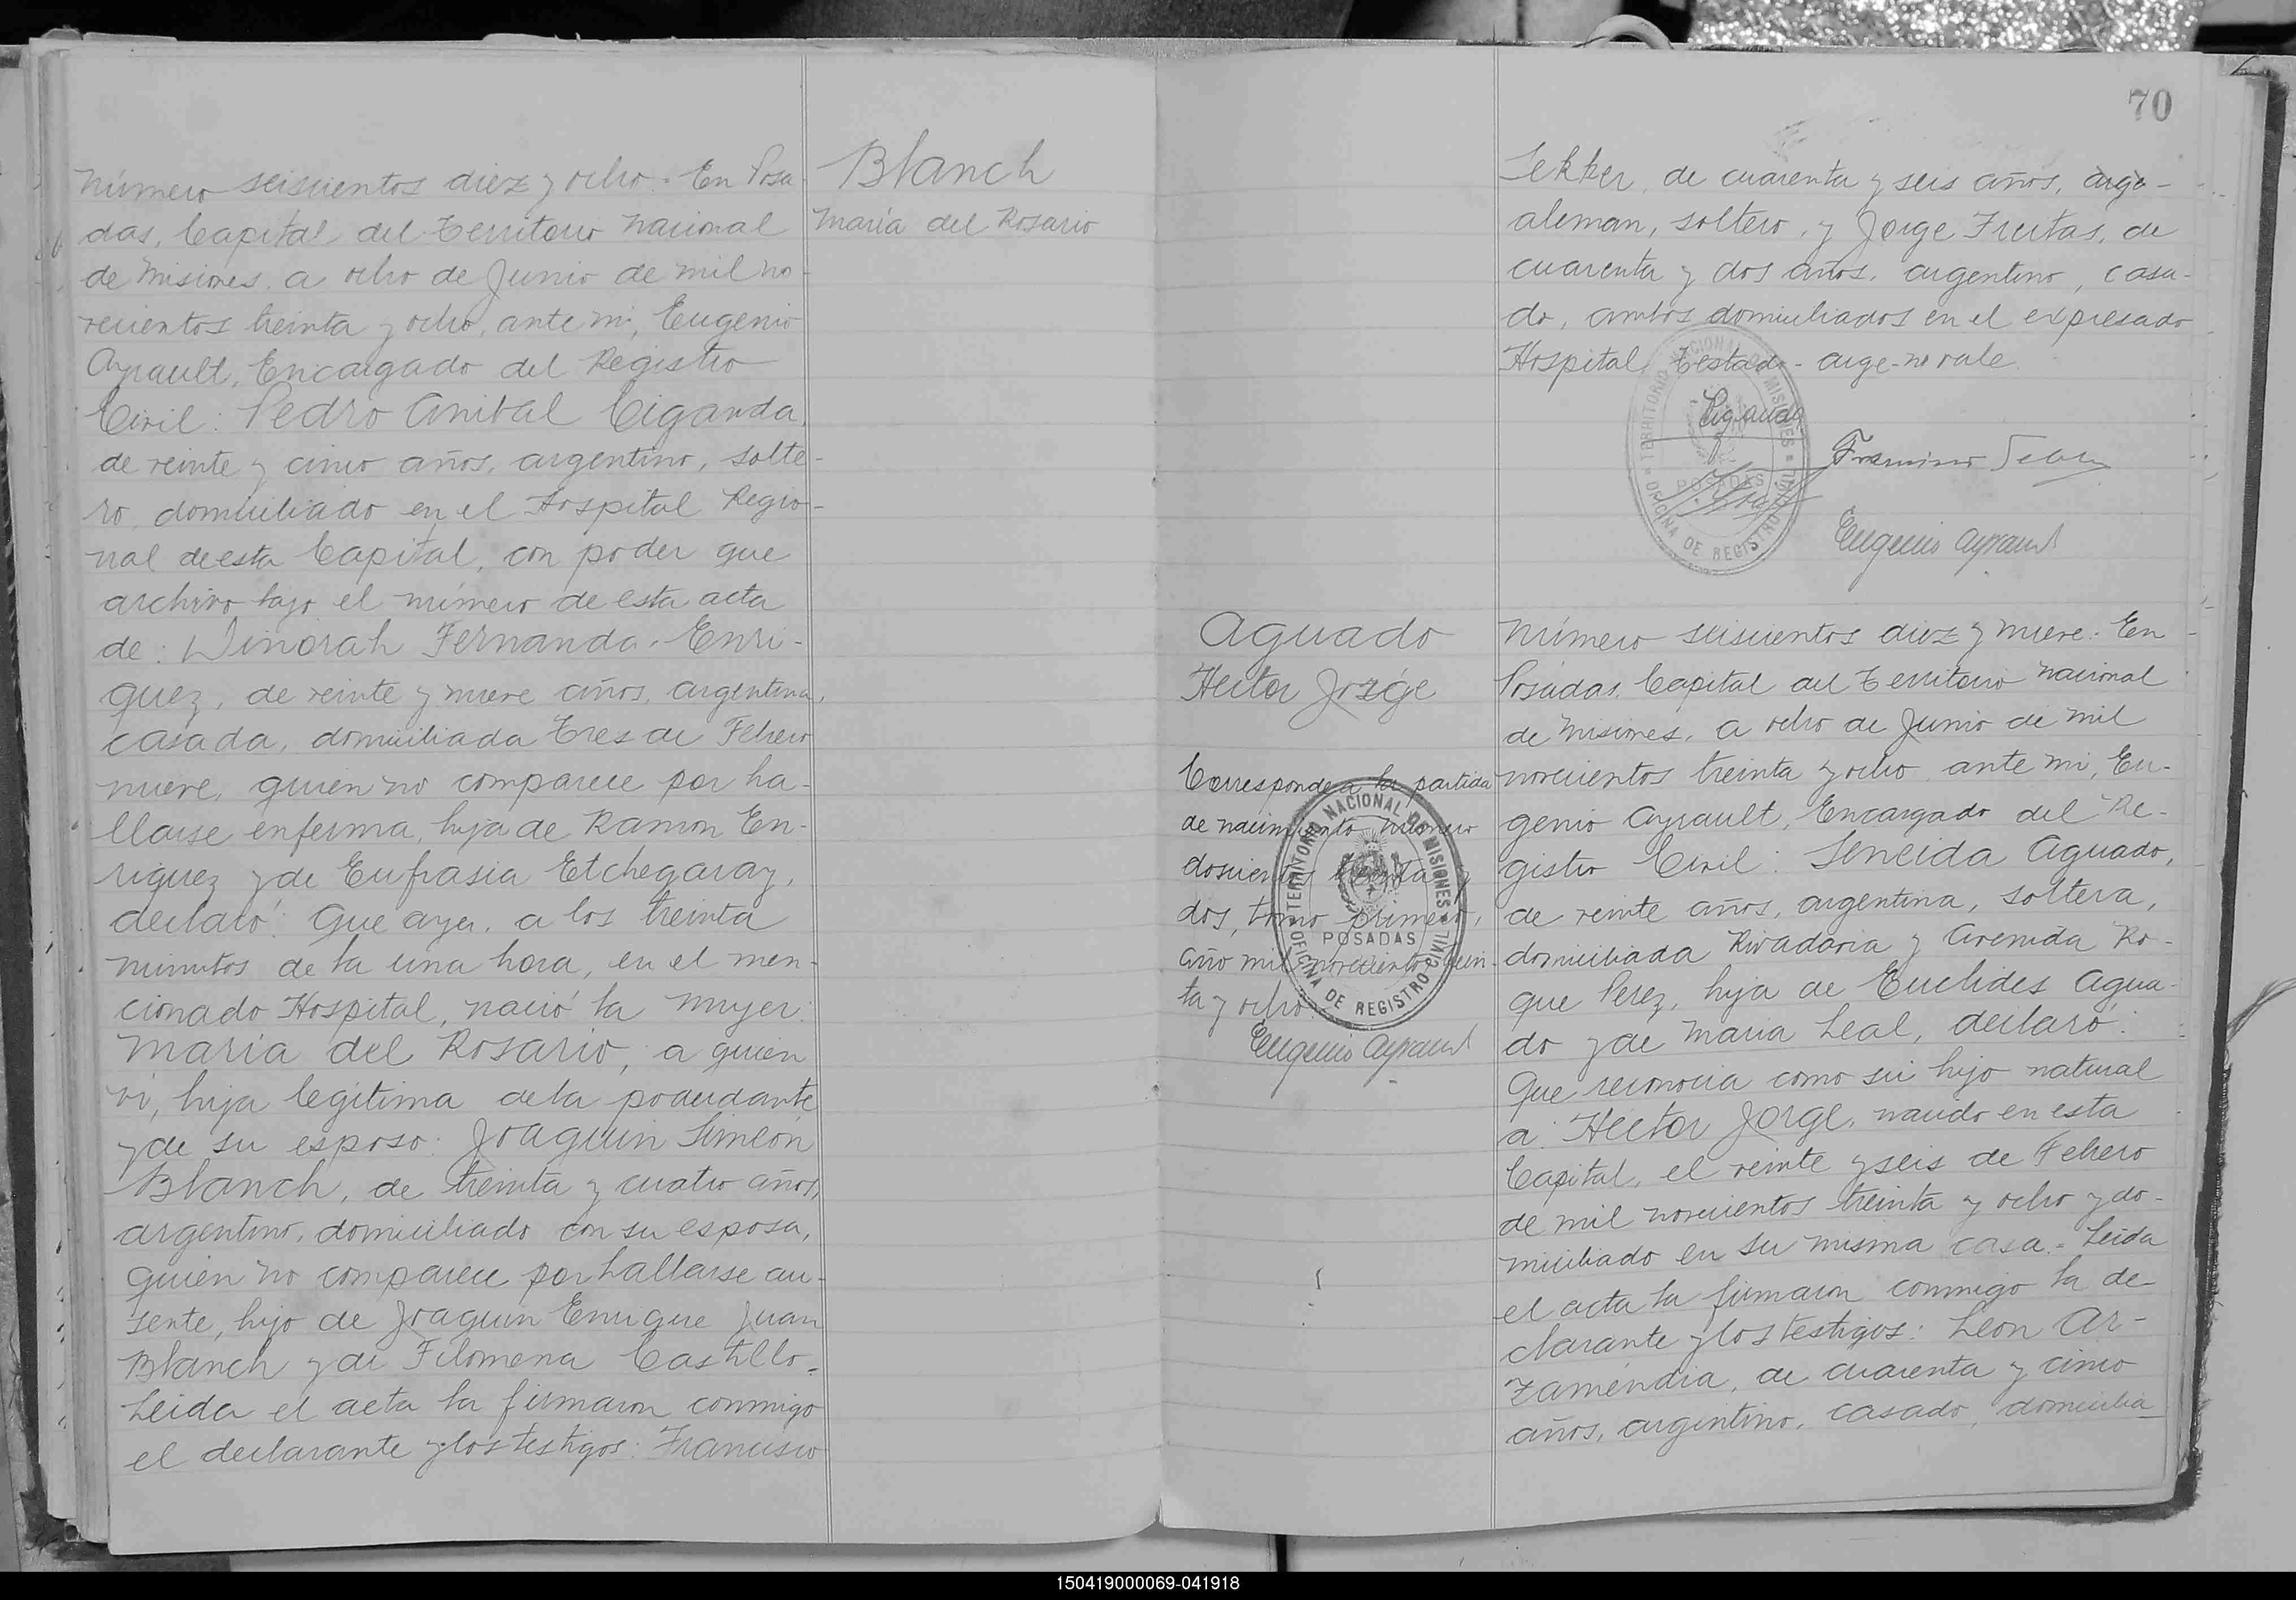 Número seiscientos diez y ocho.- En Posa-
das, Capital del Territorio Nacional
de Misiones, a ocho de Junio de mil no-
vecientos treinta y ocho, ante mi, Eugenio
Ayrault, Encargado del Registro
Civil: Pedro Anibal Ciganda,
de veinte y cinco años, argentino, solte-
ro, domiciliado en el Hospital Regio-
nal de esta Capital, con poder que
archivo bajo el número de esta acta
de: Winorah Fernanda Enri-
quez, de veinte y nueve años, argentina,
casada, domiciliada Tres de Febrero
nueve, quien no comparece por ha-
llarse enferma, hija de Ramon En-
riquez y de Eufrasia Etchegaray,
declaró: Que ayer, a los treinta
minutos de la una hora, en el men-
cionado Hospital, nació la mujer:
María del Rosario, a quien
vi, hija legítima de la poderdante
y de su esposo: Joaquin Simeón
Blanch, de treinta y cuatro años,
argentino, domiciliado con su esposa,
quien no comparece por hallarse au-
sente, hijo de Joaquin Enrique Juan
Blanch y de Filomena Castillo.=
Leida el acta la firmaron conmigo
el declarante y los testigos: Francisco
Blanch
María del Rosario
70
Sekker, de cuarenta y seis años, arge-
aleman, soltero, y Jorge Freitas, de
cuarenta y dos años, argentino, casa-
do, ambos domiciliados en el expresado
Hospital. Testado - arge - no vale.
Ciganda
Francisco
Eugenio Ayrault
TERRITORIO NACIONAL DE MISIONES
POSADAS
OFICINA DE REGISTRO CIVIL
Aguado
Héctor Jorge
Corresponde a la partida
de nacimiento número
doscientos treinta y
dos, tomo primero,
año mil novecientos trein-
ta y ocho.
Eugenio Ayrault
TERRITORIO NACIONAL DE MISIONES
POSADAS
OFICINA DE REGISTRO CIVIL
Número seiscientos diez y nueve: En
Posadas, Capital del Territorio Nacional
de Misiones, a ocho de Junio de mil
novecientos treinta y ocho, ante mi, Eu-
genio Ayrault, Encargado del Re-
gistro Civil: Seneida Aguado,
de veinte años, argentina, soltera,
domiciliada Rivadavia y Avenida Ro-
que Perez, hija de Euclides Agua-
do y de Maria Leal, declaró:
Que reconocia como su hijo natural
a: Héctor Jorge, nacido en esta
Capital, el veinte y seis de Febrero
de mil novecientos treinta y ocho y do-
miciliado en su misma casa.= Leida
el acta la firmaron conmigo la de-
clarante y los testigos: Leon Ar-
zaméndia, de cuarenta y cinco
años, argentino, casado, domicilia
150419000069-041918